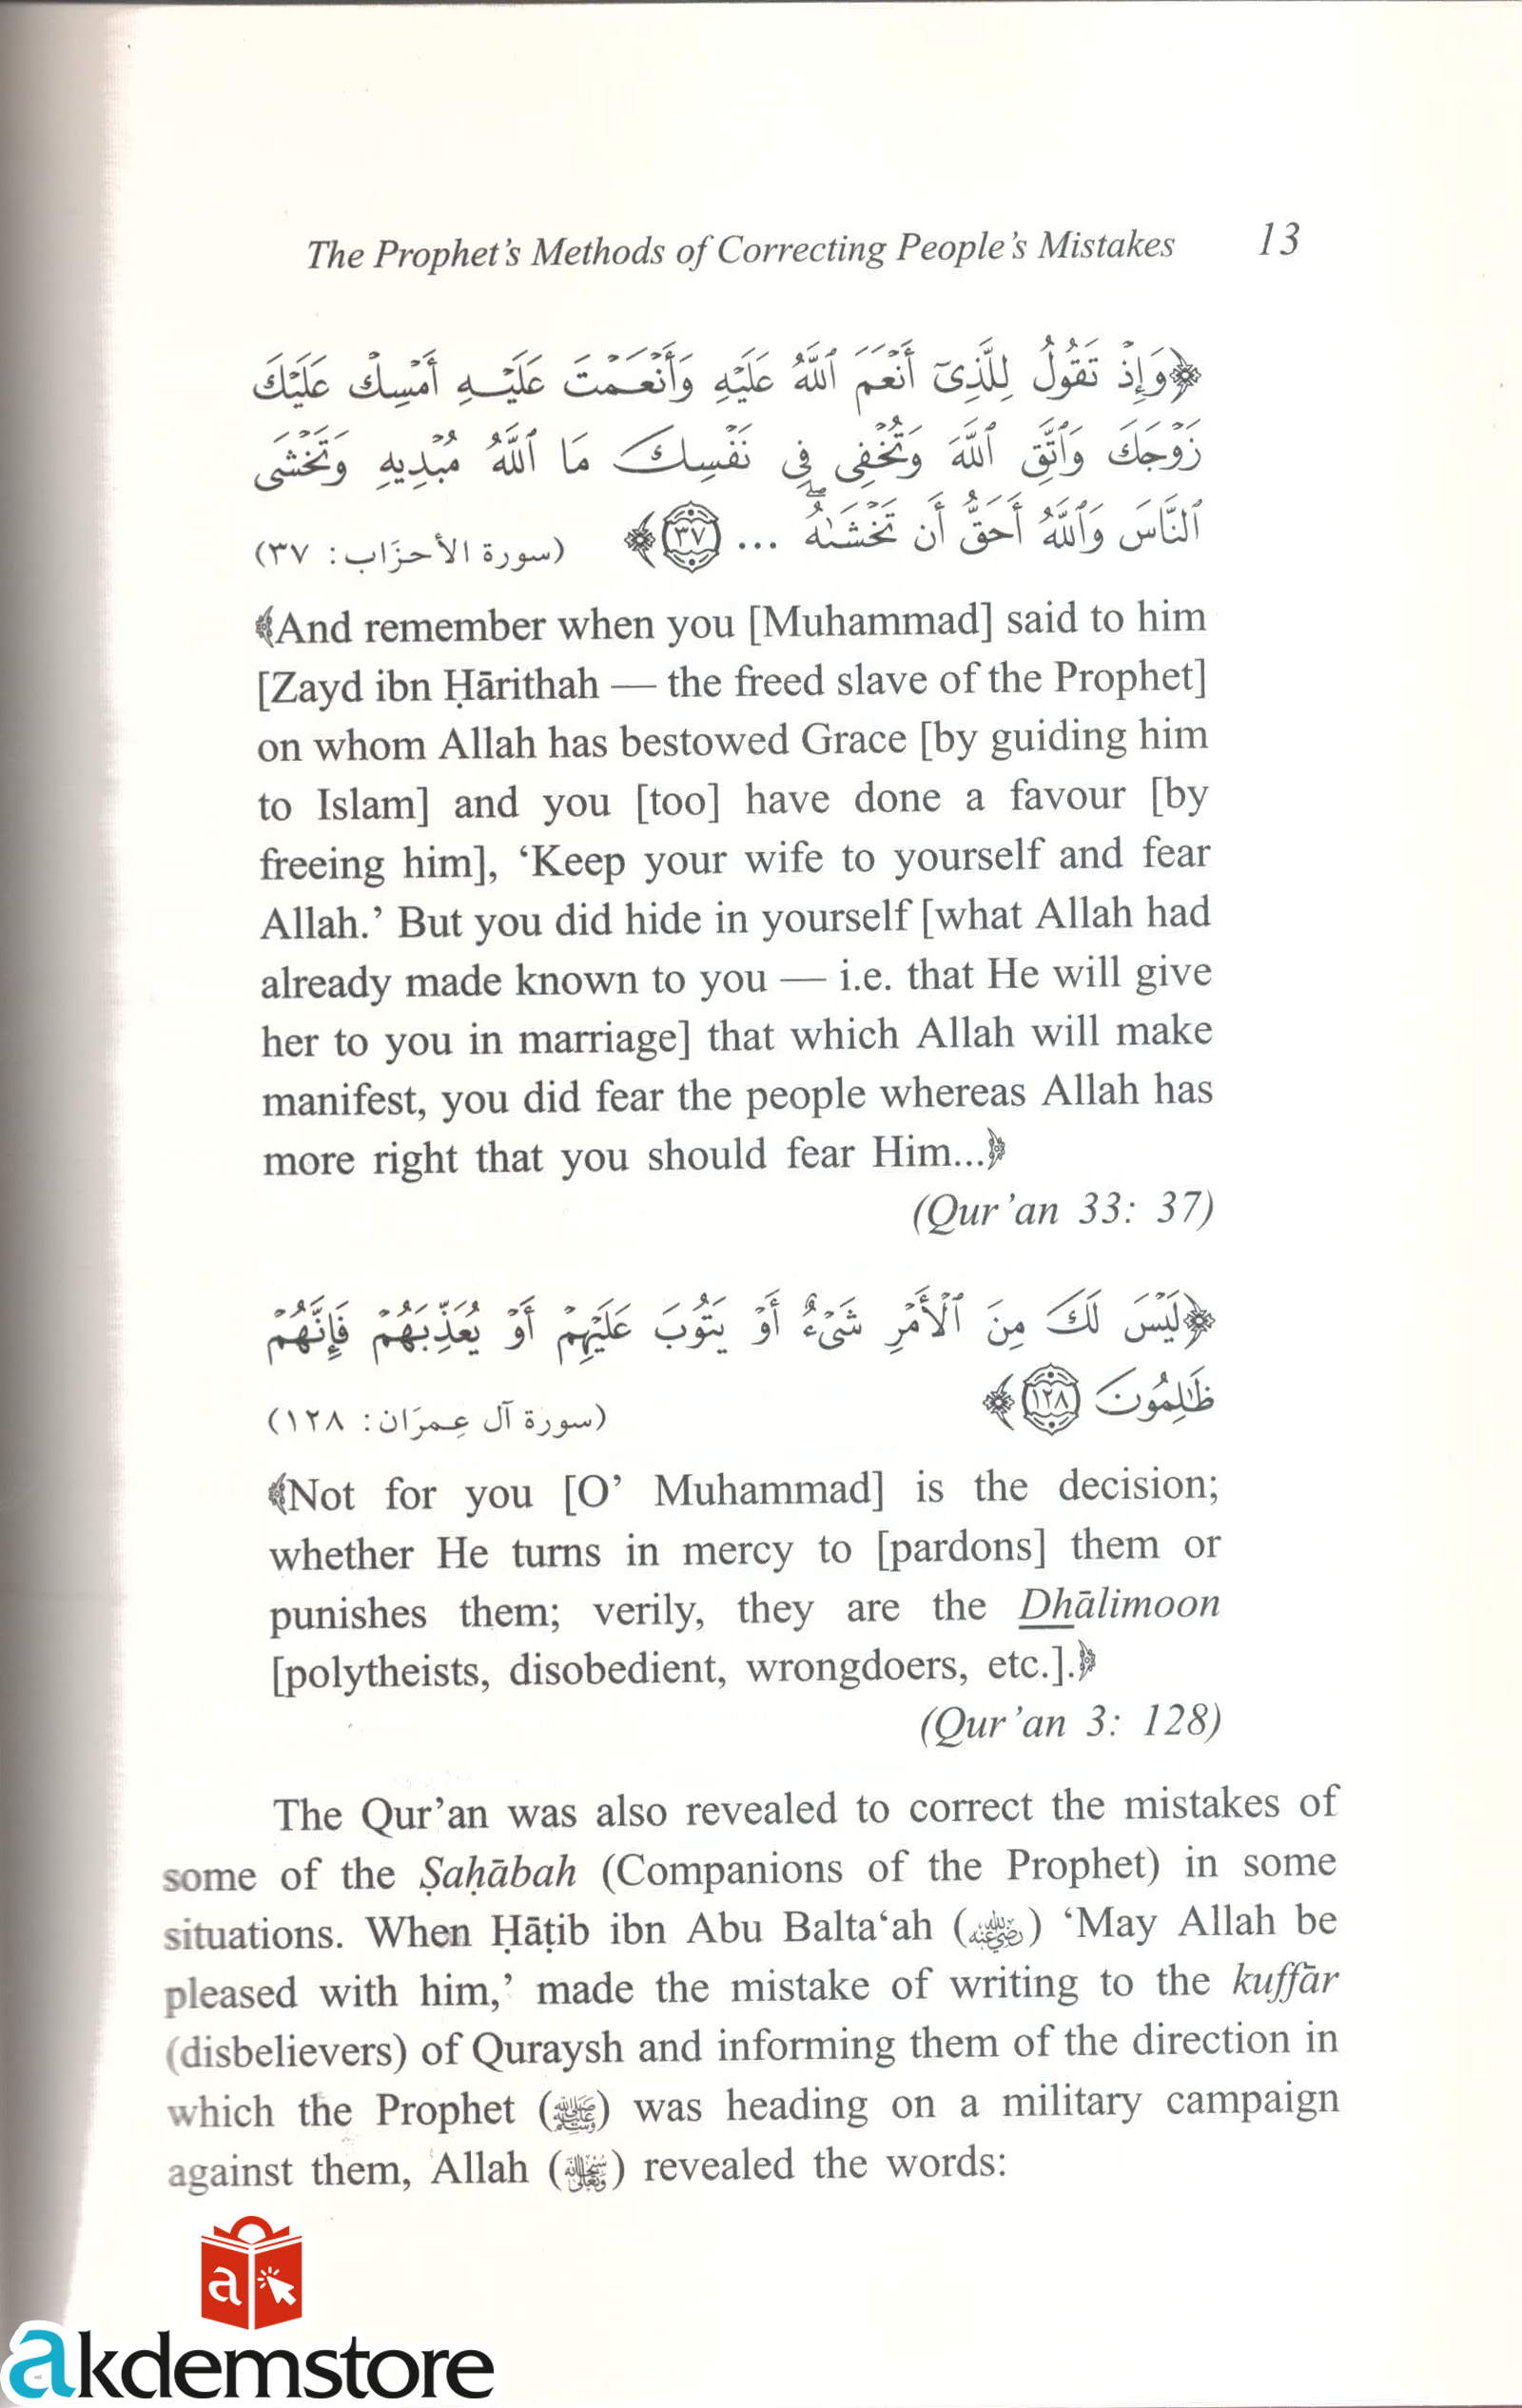 The Prophet's Methods of Correcting People's Mistakes 13
﴿وَإِذْ تَقُولُ لِلَّذِىٓ أَنْعَمَ ٱللَّهُ عَلَيْهِ وَأَنْعَمْتَ عَلَيْهِ أَمْسِكْ عَلَيْكَ
زَوْجَكَ وَٱتَّقِ ٱللَّهَ وَتُخْفِى فِى نَفْسِكَ مَا ٱللَّهُ مُبْدِيهِ وَتَخْشَى
ٱلنَّاسَ وَٱللَّهُ أَحَقُّ أَن تَخْشَىٰهُ ۖ ... ٣٧﴾ (سورة الأحزَاب: ٣٧)
﴾And remember when you [Muhammad] said to him
[Zayd ibn Ḥārithah — the freed slave of the Prophet]
on whom Allah has bestowed Grace [by guiding him
to Islam] and you [too] have done a favour [by
freeing him], ‘Keep your wife to yourself and fear
Allah.’ But you did hide in yourself [what Allah had
already made known to you — i.e. that He will give
her to you in marriage] that which Allah will make
manifest, you did fear the people whereas Allah has
more right that you should fear Him...﴿
(Qur’an 33: 37)
﴿لَيْسَ لَكَ مِنَ ٱلْأَمْرِ شَىْءٌ أَوْ يَتُوبَ عَلَيْهِمْ أَوْ يُعَذِّبَهُمْ فَإِنَّهُمْ
ظَٰلِمُونَ ١٢٨﴾ (سورة آل عِمرَان: ١٢٨)
﴾Not for you [O’ Muhammad] is the decision;
whether He turns in mercy to [pardons] them or
punishes them; verily, they are the Dhālimoon
[polytheists, disobedient, wrongdoers, etc.].﴿
(Qur’an 3: 128)
The Qur’an was also revealed to correct the mistakes of
some of the Ṣaḥābah (Companions of the Prophet) in some
situations. When Ḥāṭib ibn Abu Balta‘ah (رضي الله عنه) ‘May Allah be
pleased with him,’ made the mistake of writing to the kuffār
(disbelievers) of Quraysh and informing them of the direction in
which the Prophet (ﷺ) was heading on a military campaign
against them, Allah (سبحانه وتعالى) revealed the words:
a
akdemstore